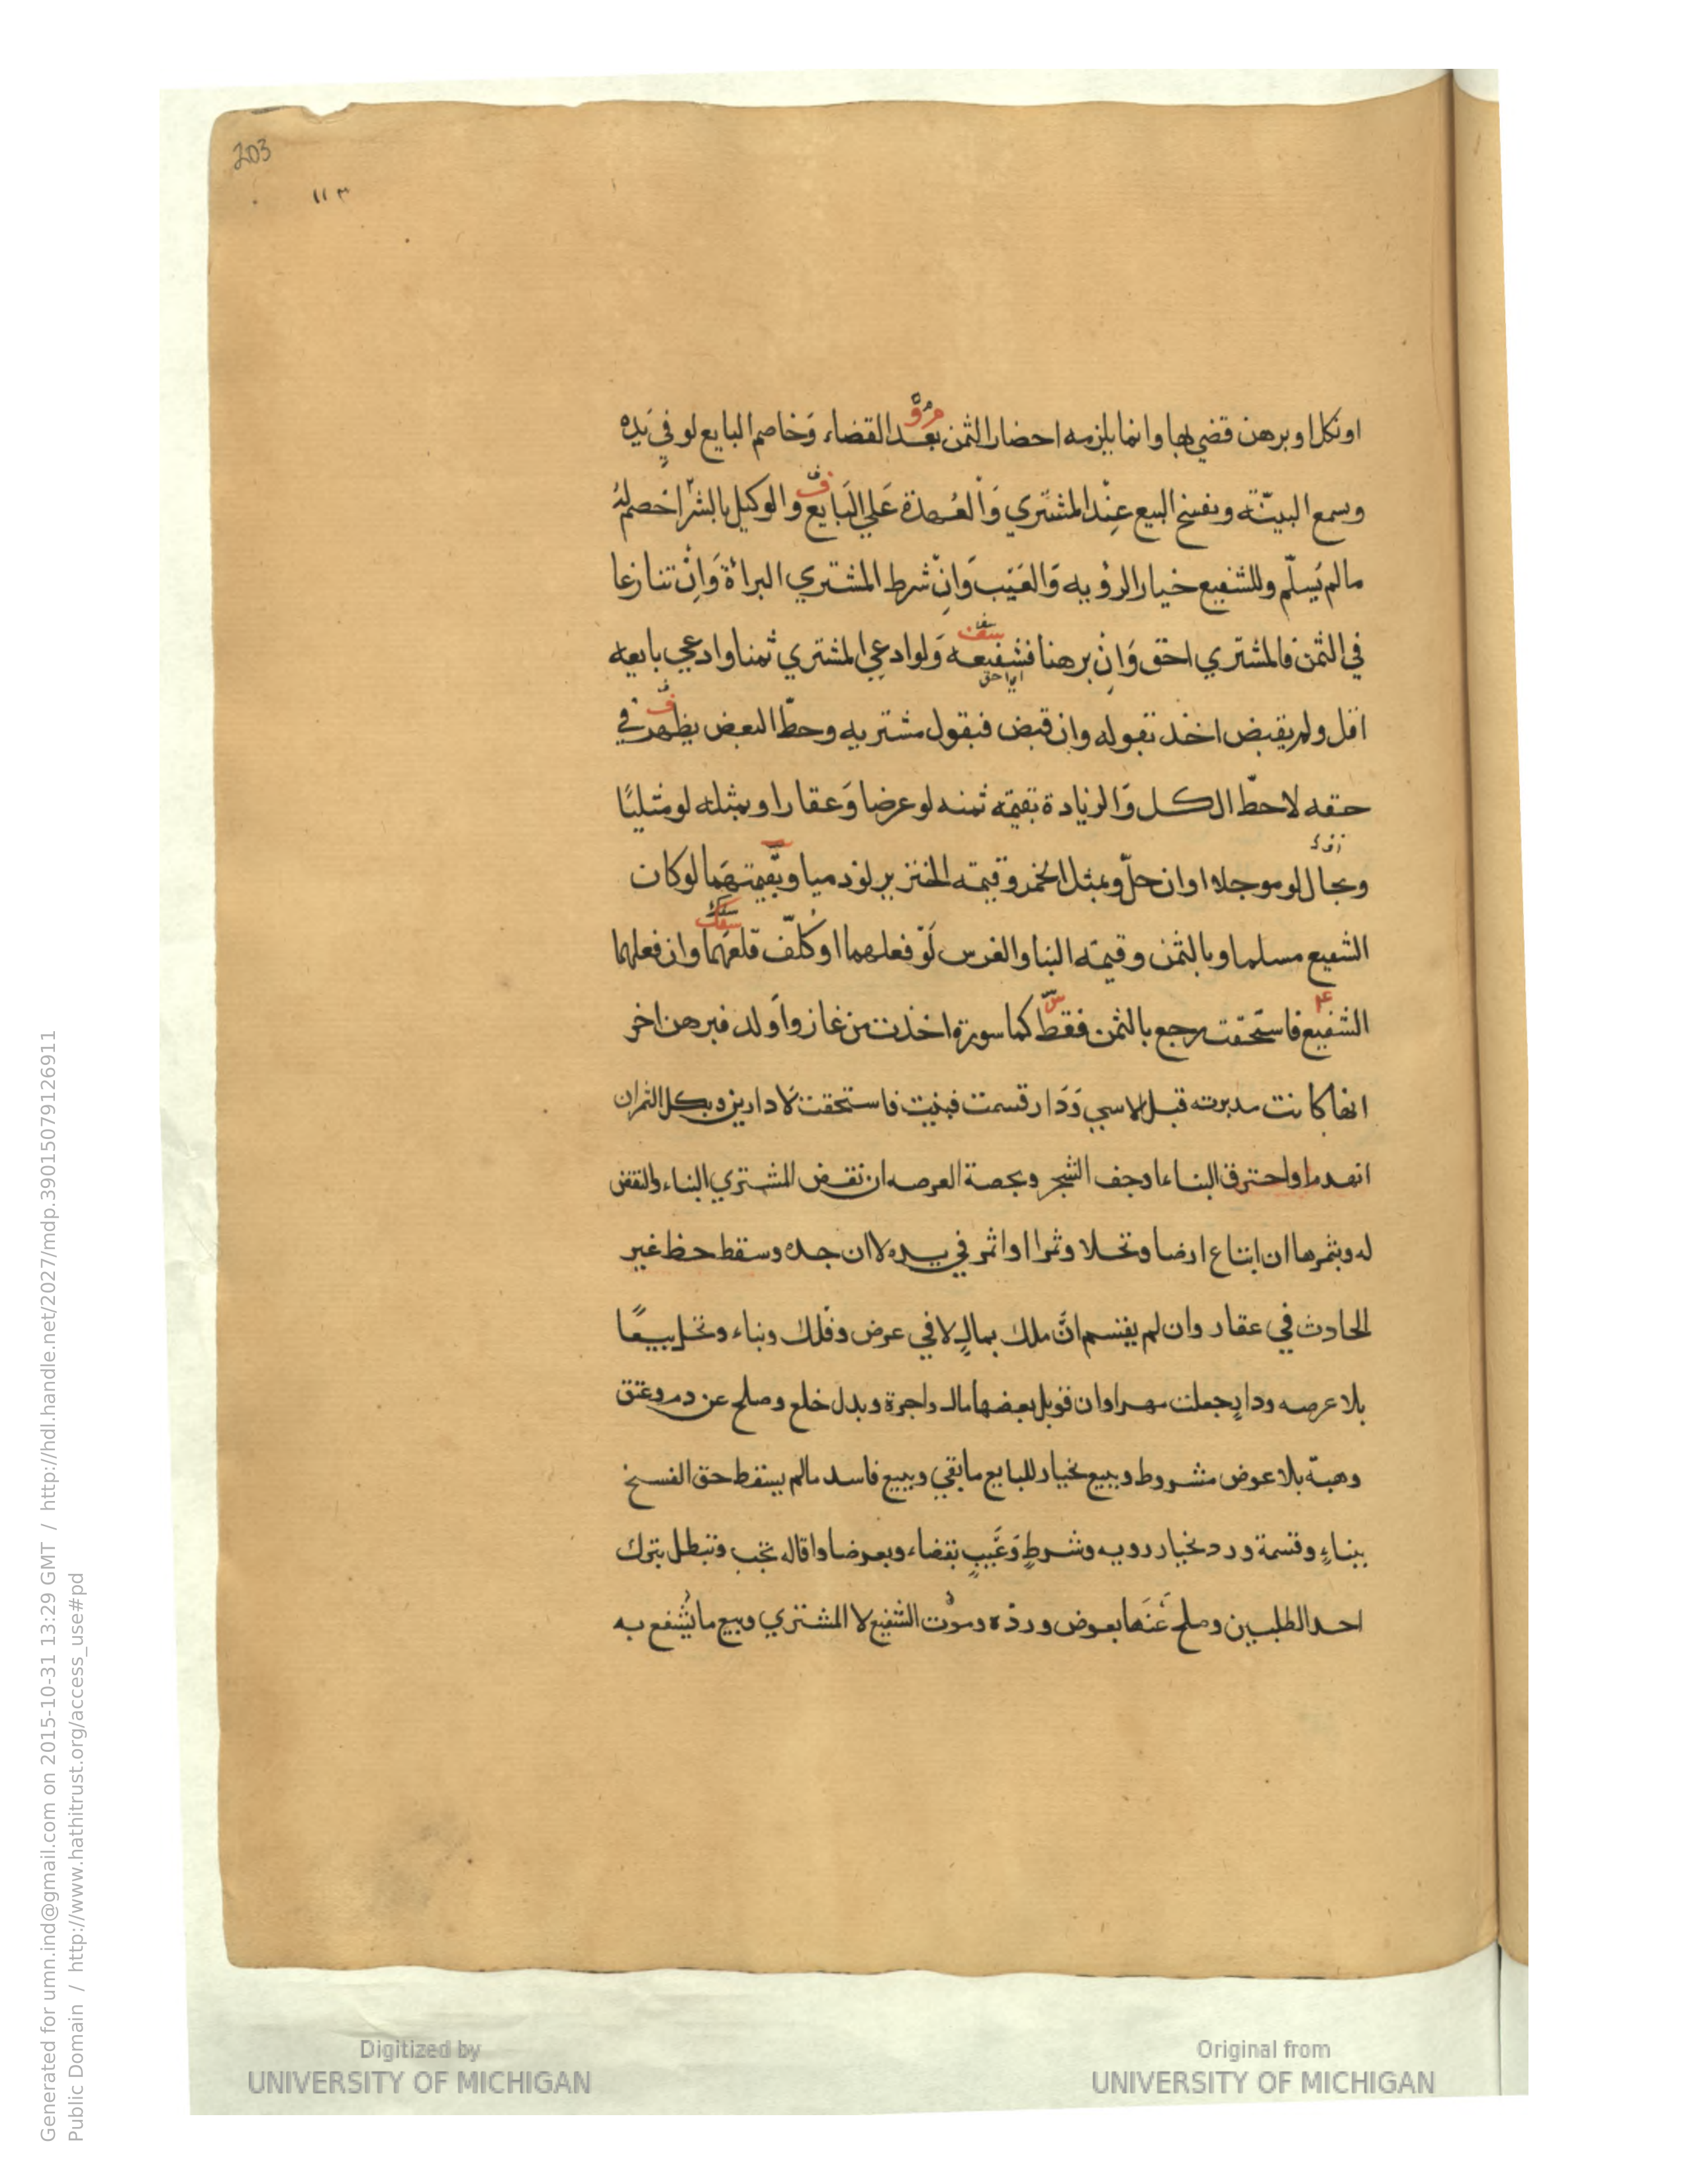 203
١١٣
او نكل او برهن قضي بها وانما يلزمه احضار الثمن بعد القضاء وَخاصم البايع لو في يَدِه
وسمع البيّنة ونفسخ البيع عِنْد المشتَري وَالعُهدة عَلي البَايع والوكيل بالشرّا خصم لهُ
مالم يُسلّم وللشفيع خيار الرؤيه وَالعَيْب وَانْ شرط المشتري البراءة وَاِنْ تنازعا
في الثمن فالمشتري احق وَاِنْ برهنا فشفيعه وَلو ادعي المشتري ثمنا وادعي بايعه
اي احق
اقل ولم يقبض اخذ بقوله وان قبض فبقول مشتريه وحطّ البعض يظهر في
حقه لا حطّ الكل وَالزيادة بقيمَة ثمنه لو عرضا وَعقارا وبمثله لو مثليًا
وبحال لو موجلا او ان حلّ وبمثل الخمر وقيمة الخنزير لو ذميا وبقيمتهما لو كان
الشفيع مسلما وبالثمن وقيمة البنا والغرس لَوْ فعلهما او كُلّف قلعهَما وان فعلهما
الشفيع فاستحقت رجع بالثمن فقطّ كماسورة اخذت من غاز واَولد فبرهن اخر
انها كانت مدبرته قبل الاسر وَدَار قسمت فبنيت فاستحقت لا دارين وبكل الثمن ان
انهدما واحترق البناء اوجف الشجر وبحصة العرصه ان نقض المشتري البناء والنقض
له وبثمرها ان ابتاع ارضا ونخلا وثمرا او اثمر في يده لا ان جده وسقط حظ غير
الحادث في عقار وان لم يقتسم انَّ ملك بمالٍ لا في عرض وفلك وبناء ونخل بيعًا
بلا عرصه ودار جعلت مهرا وان قوبل بعضها مال واجرة وبدل خلع وصلح عن دم وعتق
وهبة بلا عوض مشروط وببيع بخيار للبايع ما بقي وببيع فاسد مالم يسقط حق الفسخ
ببناءٍ وقسمة ورد بخيار رويه وشرطٍ وَعَيبٍ بقضاء وبعرضا واقاله تجب وتبطل بترك
احد الطلبين وصلح عَنهَا بعوض وردّه وموْت الشفيع لا المشتري وبيع ما يُشفع به
Digitized by
UNIVERSITY OF MICHIGAN
Original from
UNIVERSITY OF MICHIGAN
Generated for umn.ind@gmail.com on 2015-10-31 13:29 GMT / http://hdl.handle.net/2027/mdp.39015079126911
Public Domain / http://www.hathitrust.org/access_use#pd